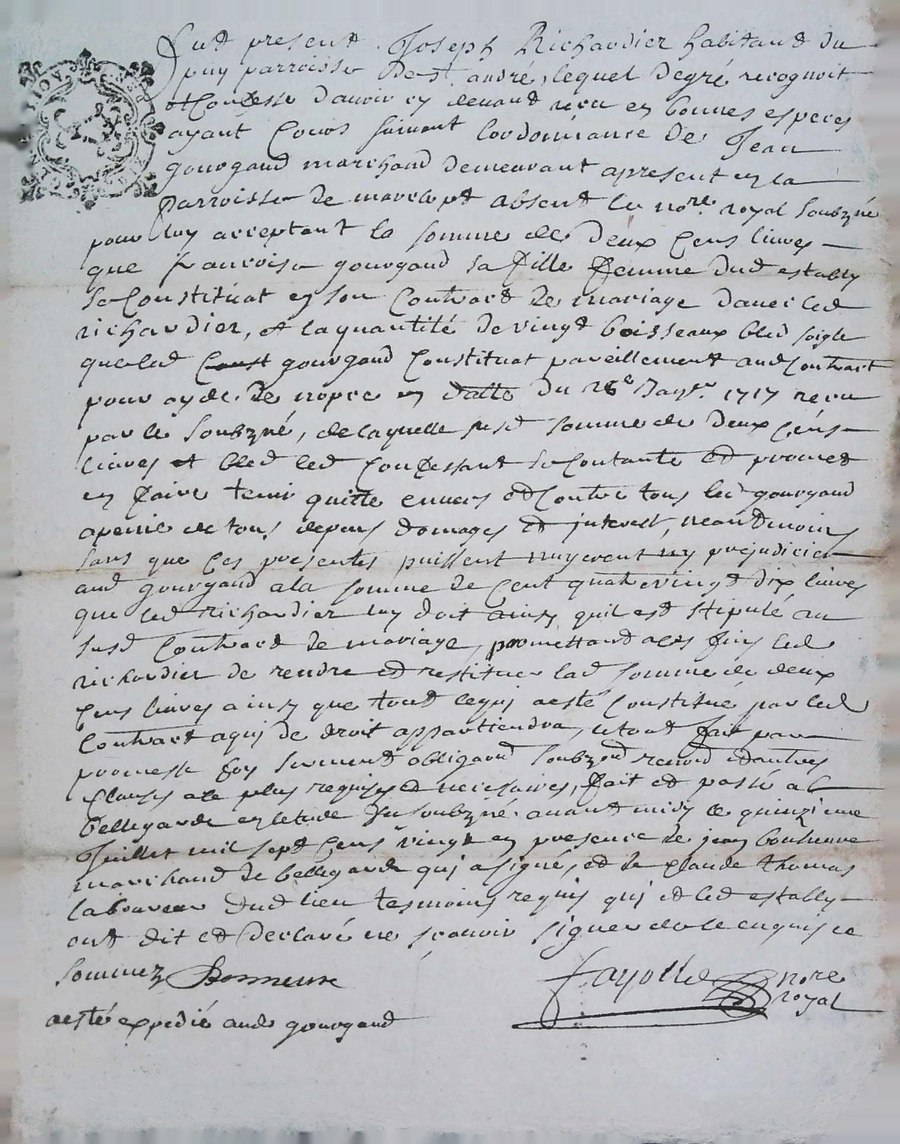 Fut present Joseph Richardier habitand du
puy parroisse de st andré, lequel degré recognoit
et Confesse d'avoir cy devand receu en bonnes especes
ayant Cours suivant lordonniance de Jean
gourgaud marchand demeurant apresent en la
parroisse de marclopt absent le nore royal soubzné
pour luy acceptant la somme de deux Cens livres
que francoise gourgaud sa fille femme dud estably
sa Constituat en son Contract de mariage d'avec led
richardier, et la quantité de vingt boisseaux bled soigle
que led gourgaud Constituat pareillement aud Contract
pour ayde de nopce en datte du 26e Janvr 1717 receu
par le soubzné, de laquelle susd somme de deux Cens
livres et bled led Confessant se Contante et promet
en faire tenir quitte envers et Contre tous led gourgaud
apeine de tous depens domages et interest, neandmoins
sans que Ces presentes puissent nuyre ny prejudicier
aud gourgaud a la somme de Cent quatrevingt dix livres
que led richardier luy doit ainsy quil est stipulé au
susd Contract de mariage, promettand a ces fins led
richardier de rendre et restituer lad somme de deux
Cens livres ainsy que tout ce qui a esté Constitué par led
Contract a qui de droit appartiendra, le tout fait par
promesse foy serment obligaon soubzon renon et autres
Clauses a ce plus requises et necessaires, fait et passé a
bellegarde en letude du soubzné avant midy le quinzieme
Juillet mil sept Cens vingt en presence de jean bonneme
marchand de bellegarde qui a signé, et de Claude thomas
laboureur dud lieu tesmoins requis qui et led estably
ont dit et declaré ne scavoir signer de ce enquis et
sommez Bonneme
Fayolle nore
royal
a esté expedié aud gourgaud